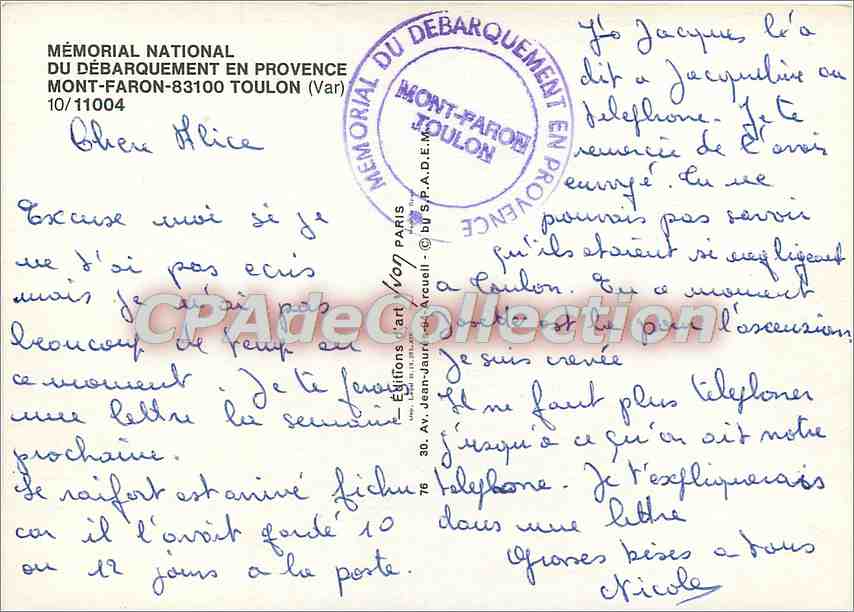 MÉMORIAL NATIONAL
DU DÉBARQUEMENT EN PROVENCE
MONT-FARON-83100 TOULON (Var)
10/11004
MÉMORIAL DU DEBARQUEMENT EN PROVENCE
MONT-FARON
TOULON
Chere Alice
Excuse moi si je
ne t'ai pas ecris
mais je n'ai pas
beaucoup de temp en
ce moment. Je te ferais
une lettre la semaine
prochaine.
Le raifort est arrivé fichu
car il l'avait gardé 10
ou 12 jours a la poste.
76 30. Av. Jean-Jaurès-94-Arcueil - © by S.P.A.D.E.M.
— Éditions d'art yvon PARIS
Jacques lé a
dit a Jacqueline au
telephone. Je te
remercie de l'avoir
envoyé. Tu ne
pouvais pas savoir
qu'ils etaient si negligeant
a Toulon. En ce moment
Josette est là pour l'ascension
Je suis crevée
Il ne faut plus telephoner
jusqu'a ce qu'on ait notre
telephone. Je t'expliquerais
dans une lettre
Grosses bises a tous
Nicole
CPAdeCollection